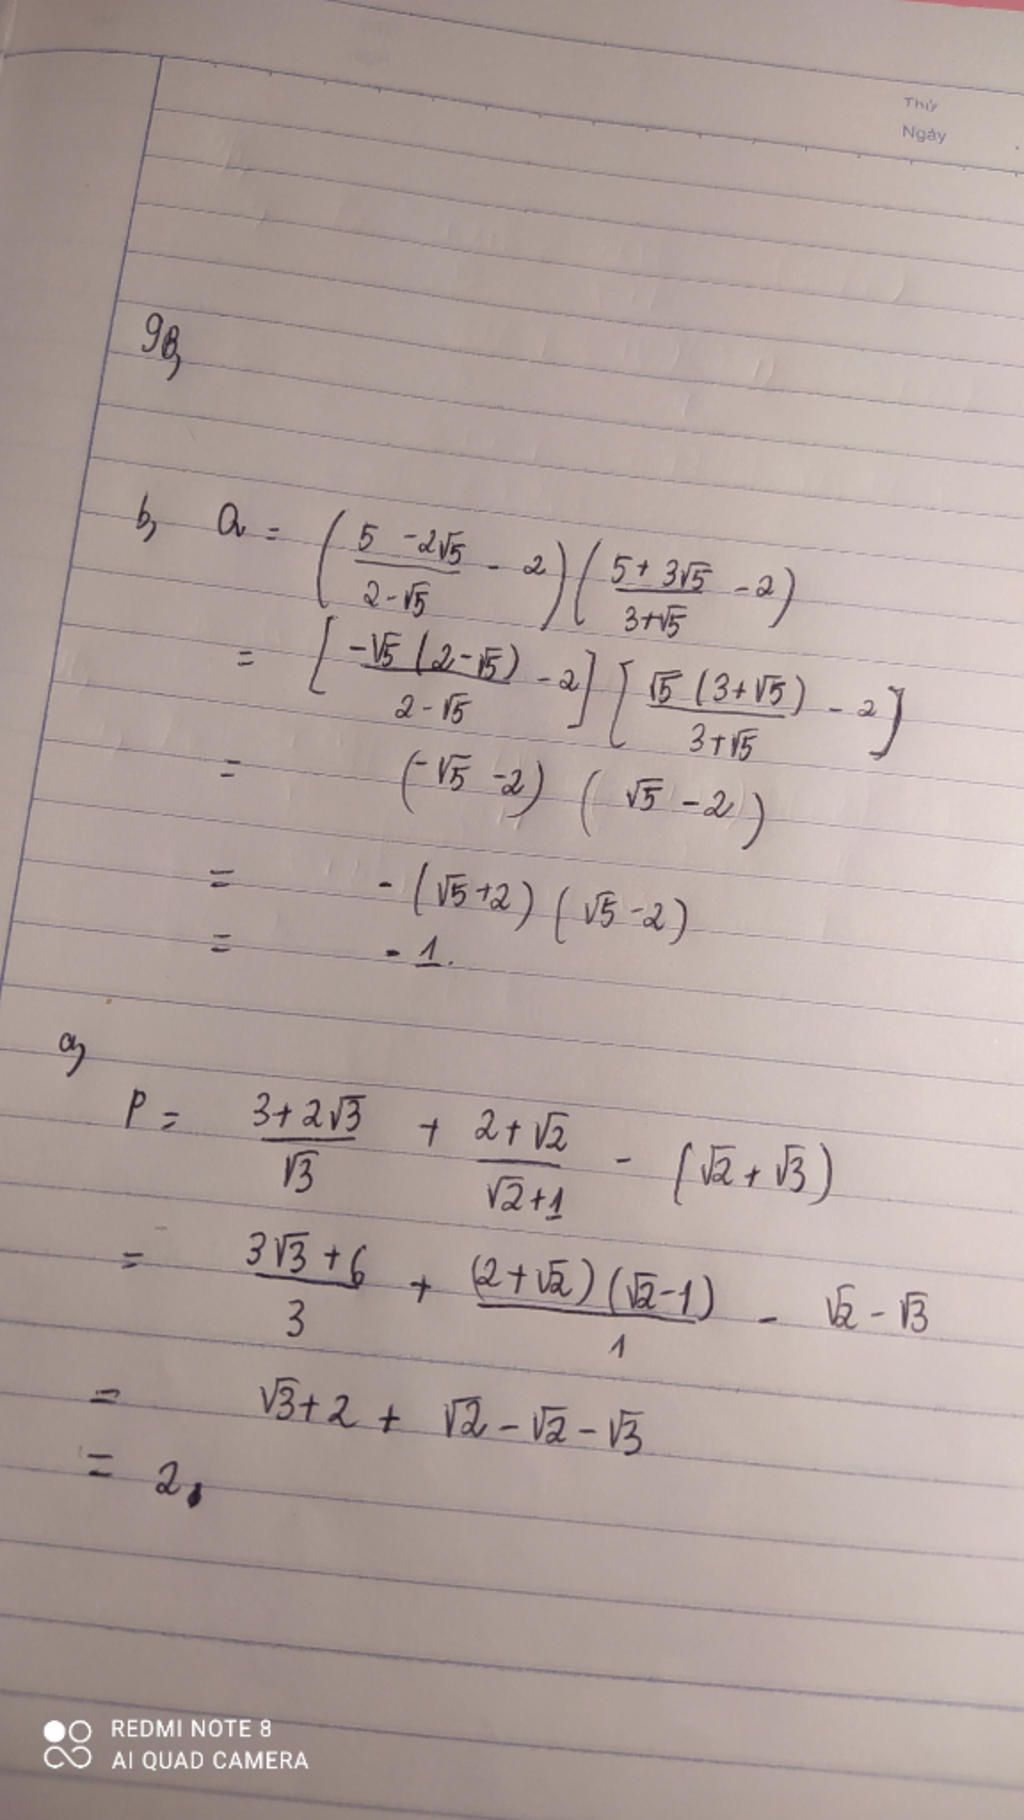 Thứ
Ngày
9B,
b, Q = ( (5 - 2√5)/(2 - √5) - 2 ) ( (5 + 3√5)/(3 + √5) - 2 )
= [ (-√5 (2 - √5))/(2 - √5) - 2 ] [ (√5 (3 + √5))/(3 + √5) - 2 ]
= (-√5 - 2) ( √5 - 2 )
= - (√5 + 2) (√5 - 2)
= - 1.
a,
P = (3 + 2√3)/√3 + (2 + √2)/(√2 + 1) - (√2 + √3)
= (3√3 + 6)/3 + ((2 + √2) (√2 - 1))/1 - √2 - √3
= √3 + 2 + √2 - √2 - √3
= 2.
REDMI NOTE 8
AI QUAD CAMERA